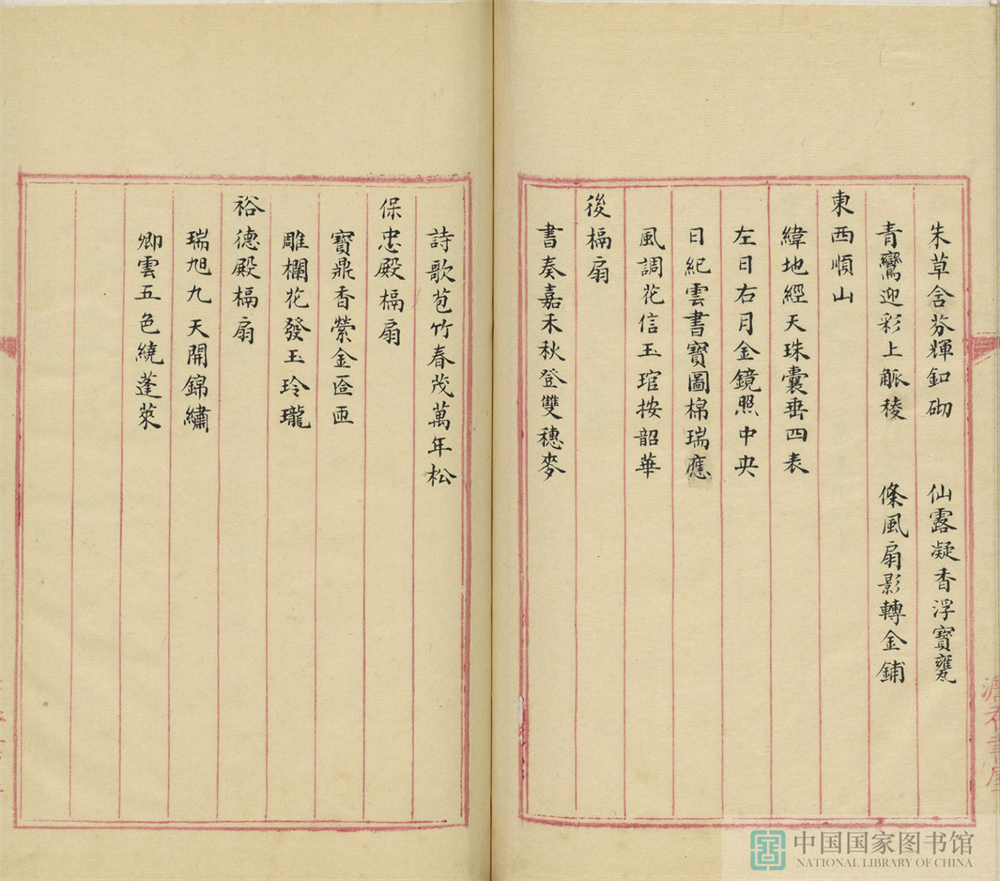 朱草含芬輝釦砌　仙露凝香浮寶甕
青鸞迎彩上觚稜　條風扇影轉金鋪
東西順山
緯地經天珠囊垂四表
左日右月金鏡照中央
日紀雲書寶圖棉瑞應
風調花信玉琯按韶華
後槅扇
書奏嘉禾秋登雙穗麥
詩歌苞竹春茂萬年松
保忠殿槅扇
寶鼎香縈金匼匝
雕欄花發玉玲瓏
裕德殿槅扇
瑞旭九天開錦繡
卿雲五色繞蓬萊
中国国家图书馆
NATIONAL LIBRARY OF CHINA